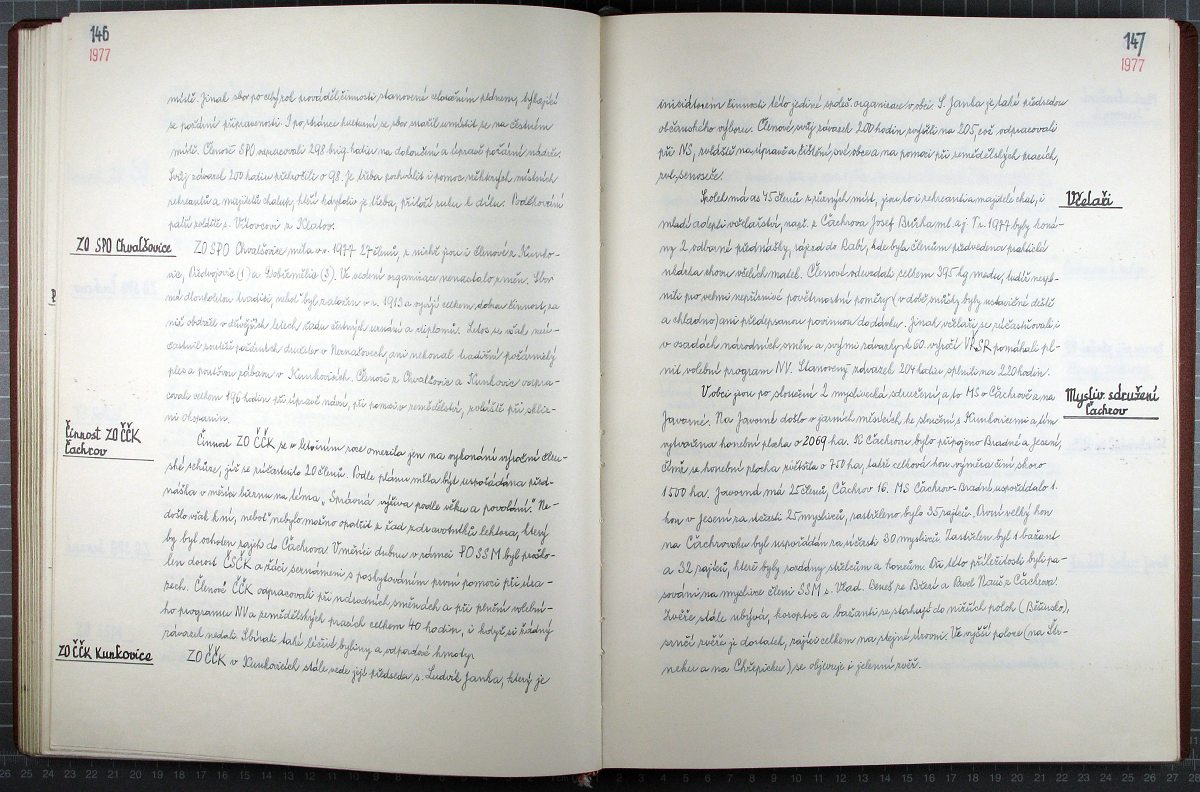 146
1977
místě. Jinak sbor po celý rok prováděl činnosti, stanovené celoročním plánem, týkající
se požární připravenosti. I po stránce kulturní se sbor snažil umístit se na čestném
místě. Členové SPO odpracovali 298 brig. hodin na dokončení a úpravě požární nádrže.
Svůj závazek 200 hodin překročili o 98. Je třeba pochválit i pomoc některých místních
rekreantů a majitelů chalup, kteří kdykoliv je třeba, přiloží ruku k dílu. Poděkování
patří zvláště s. Vítovcovi z Klatov.
ZO SPO Chvalšovice
ZO SPO Chvalšovice měla v r. 1977 27 členů, z nichž jsou i členové z Kunko-
vic, Předvojovic (1) a Dobřemilic (3). Ve vedení organizace nenastalo změn. Sbor
má dlouholetou tradici, neboť byl založen v r. 1913 a vyvíjí celkem dobrou činnost, za
niž obdržel v dřívějších letech řadu čestných uznání a diplomů. Letos se však nezú-
častnil soutěží požárních družstev v Nemilkovech, ani nekonal tradiční požárnický
ples a pouťovou zábavu v Kunkovicích. Členové z Chvalšovic a Kunkovic odpra-
covali celkem 196 hodin při úpravě návsí, při pomoci v zemědělství, zvláště při skliz-
ni okopanin.
Činnost ZO ČČK
Čachrov
Činnost ZO ČČK se v letošním roce omezila jen na vykonání výroční člen-
ské schůze, jíž se zúčastnilo 20 členů. Podle plánu měla být uspořádána před-
náška v měsíci březnu na téma „Správná výživa podle věku a povolání." Ne-
došlo však k ní, neboť nebylo možno opatřit z řad zdravotníků lektora, který
by byl ochoten zajet do Čachrova. V měsíci dubnu v rámci PO SSM byl proško-
len dorost ČSČK a žáci seznámeni s poskytováním první pomoci při úra-
zech. Členové ČČK odpracovali při národních směnách a při plnění voleb-
ního programu NV a zemědělských pracích celkem 40 hodin, i když si žádný
závazek nedali. Sbírali také léčivé byliny a odpadové hmoty.
ZO ČČK Kunkovice
ZO ČČK v Kunkovicích stále vede její předseda s. Ludvík Janka, který je
147
1977
iniciátorem činnosti této jediné společ. organizace v obci. S. Janka je také předsedou
občanského výboru. Členové svůj závazek 200 hodin zvýšili na 205, což odpracovali
při NS, zvláště na úpravě a čištění své obce a na pomoci při zemědělských pracích,
zvl. senoseče.
Včelaři
Spolek má as 45 členů z různých míst, jsou to i rekreanti a majitelé chat, i
mladí adepti včelařství, např. z Čachrova Josef Burkaml aj. V r. 1977 byly koná-
ny 2 odborné přednášky, zájezd do Babí, kde byla členům předvedena praktická
ukázka chovu včelích matek. Členové odevzdali celkem 395 kg medu, tudíž nespl-
nili pro velmi nepříznivé povětrnostní poměry (v době snůšky byly ustavičné deště
a chladno) ani předepsanou povinnou dodávku. Jinak včelaři se zúčastňovali i
v osadách národních směn a svými závazky k 60. výročí VŘSR pomáhali pl-
nit volební program NV. Stanovený závazek 204 hodin splnili na 220 hodin.
Mysliv. sdružení
Čachrov
V obci jsou po sloučení 2 myslivecká sdružení, a to MS v Čachrově a na
Javorné. Na Javorné došlo v jarních měsících ke sloučení s Kunkovicemi a tím
vytvořena honební plocha o 2069 ha. K Čachrovu bylo připojeno Bradné a Jesení,
čímž se honební plocha zvětšila o 750 ha, takže celková hon. výměra činí skoro
1500 ha. Javorná má 25 členů, Čachrov 16. MS Čachrov-Bradné uspořádalo 1.
hon v Jesení za účasti 25 myslivců, zastřeleno bylo 35 zajíců. První velký hon
na Čachrovsku byl uspořádán za účasti 30 myslivců. Zastřelen byl 1 bažant
a 32 zajíců, kteří byly rozdány střelcům a honcům. Při této příležitosti byli pa-
sováni na myslivce členi SSM s. Vlad. Beneš ze Bžezí a Pavel Nauš z Čachrova.
Zvěře stále ubývá, koroptve a bažanti se stahují do nižších poloh (Běšinsko),
srnčí zvěře je dostatek, zajíců celkem na stejné úrovni. Ve vyšší poloze (na Šir-
neku a na Chřepicku) se objevuje i jelenní zvěř.